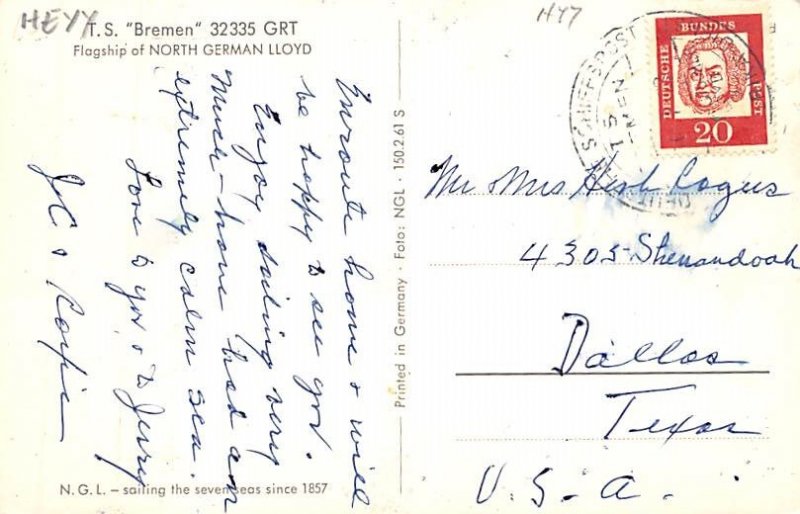 HEYY
T.S. "Bremen" 32335 GRT
Flagship of NORTH GERMAN LLOYD
Enroute home & will
be happy to see you.
Enjoy sailing very
Much - have had an
extremely calm sea.
Love to you & to Jerry
JC &
N.G.L. – sailing the seven seas since 1857
Printed in Germany · Foto: NGL · 150.2.61 S
HY7
DEUTSCHE
BUNDES
POST
20
SCHIFFSPOST
Mr Mrs Herb
4305 - Shenandoah
Dallas
Texas
U.S.A.